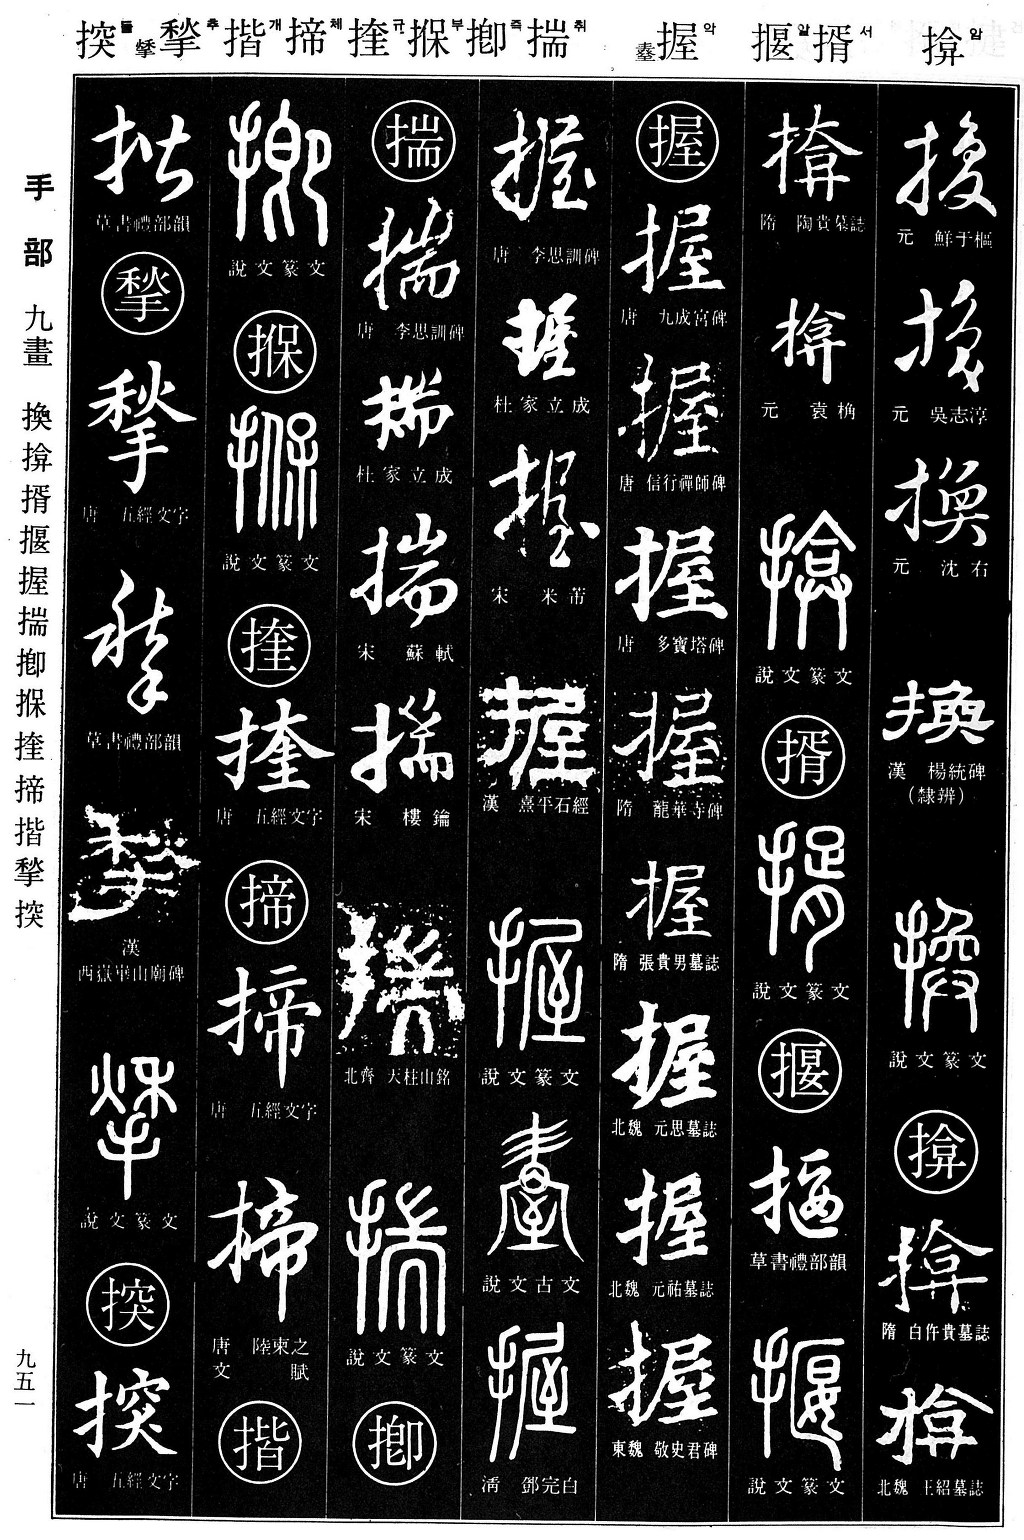 揬 돌 揫 추 揩 개 揥 체 揆 규 捊 부 揤 즉 揣 취
握 악
揠 알 揟 서
揜 암
手部 九畫 換揜揟揠握揣揤揆揥揩揫揬
九五一
換
元 鮮于樞
換
元 吳志淳
換
元 沈右
換
漢 楊統碑
(隸辨)
換
說文篆文
揜
揜
隋 白仵貴墓誌
揜
北魏 王紹墓誌
揜
隋 陶貴墓誌
揜
元 袁桷
揜
說文篆文
揟
揟
說文篆文
揠
揠
草書禮部韻
揠
說文篆文
握
握
唐 九成宮碑
握
唐 信行禪師碑
握
唐 多寶塔碑
握
隋 龍華寺碑
握
隋 張貴男墓誌
握
北魏 元思墓誌
握
北魏 元祐墓誌
握
東魏 敬史君碑
握
唐 李思訓碑
握
杜家立成
握
宋 米芾
握
漢 熹平石經
握
說文篆文
說文古文
握
清 鄧完白
揣
揣
唐 李思訓碑
揣
杜家立成
揣
宋 蘇軾
揣
宋 樓鑰
北齊 天柱山銘
揣
說文篆文
揤
揤
說文篆文
說文篆文
唐 五經文字
揥
揥
唐 五經文字
揥
唐 陸柬之
文賦
揩
揩
草書禮部韻
揫
揫
唐 五經文字
揫
草書禮部韻
揫
漢
西嶽崋山廟碑
揫
說文篆文
揬
揬
唐 五經文字